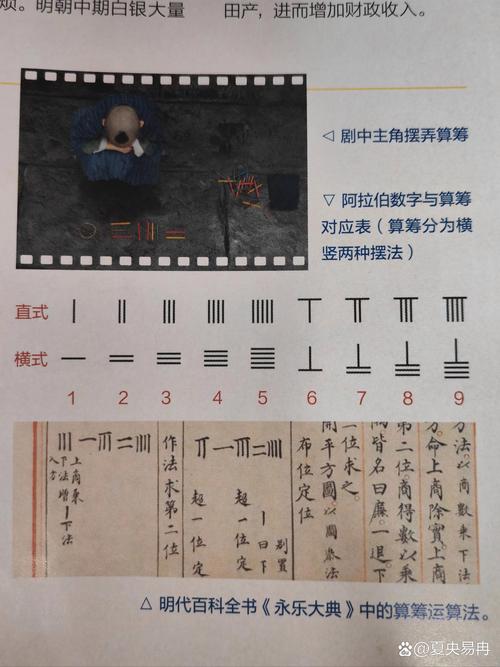 烦。明朝中期白银大量
田产，进而增加财政收入。
◁ 剧中主角摆弄算筹
▽ 阿拉伯数字与算筹
对应表（算筹分为横
竖两种摆法）
直式
横式
1 2 3 4 5 6 7 8 9
方法。以商数乘下法
方。命上商除实上商
第二位。商得数以乘
皆名曰廉。一退下
二位求之。
开平方圆以圆叅法
布位定位
别置
丨曰下
超一位定
超一位定
作法求第二位
上商乘
下法增丨下法
入方
△ 明代百科全书《永乐大典》中的算筹运算法。
@夏央易冉